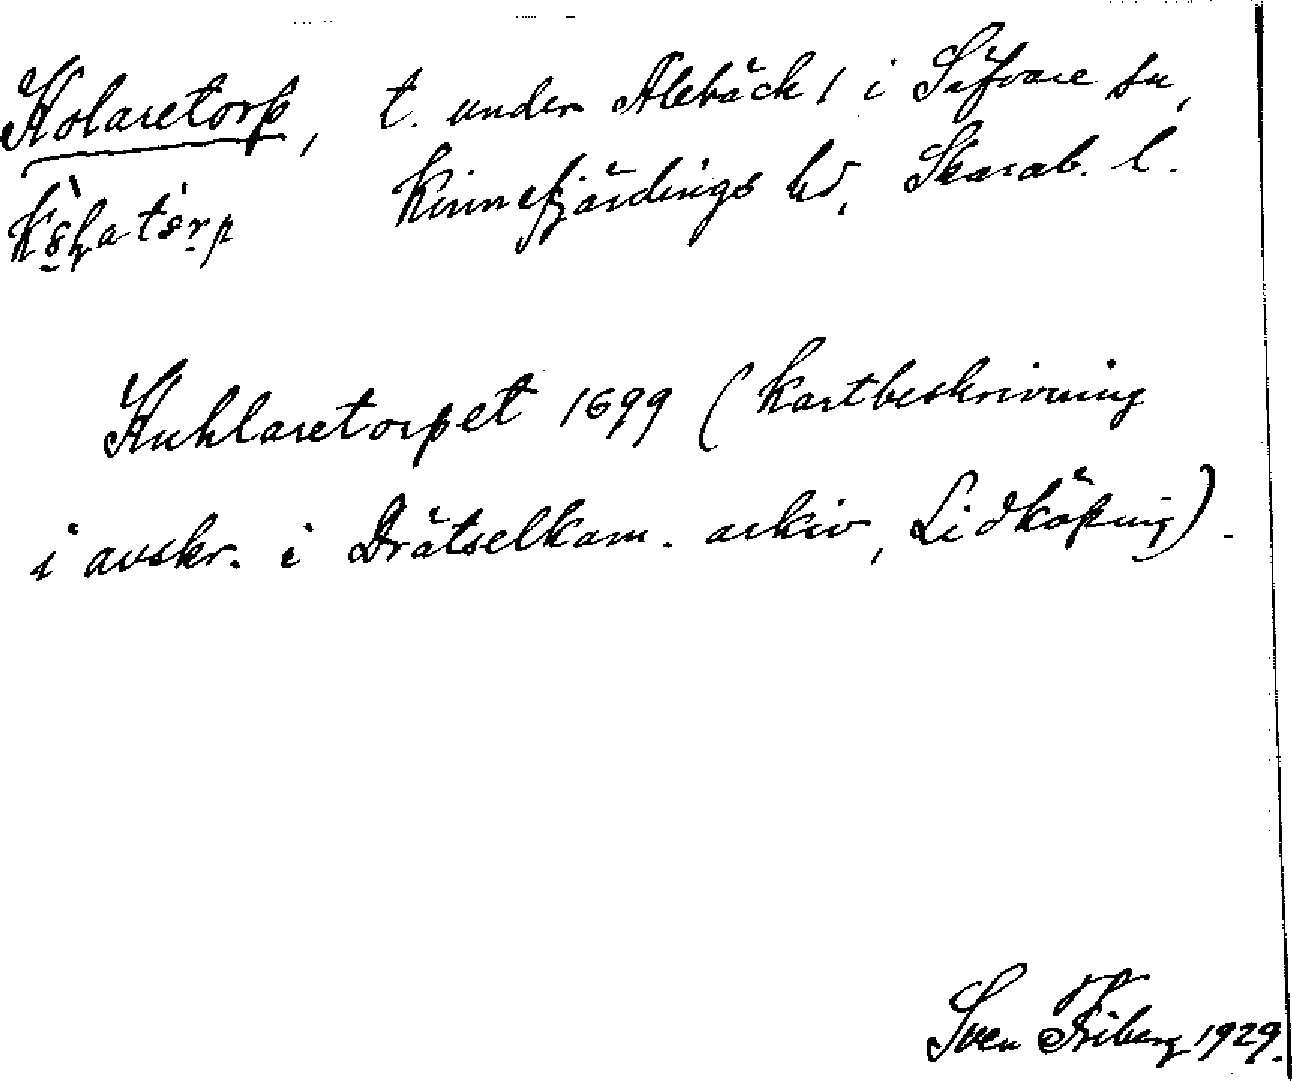 Kolaretorp, t. under Alebäck 1 i Säfvare sn,
Kinnefjärdings hd, Skarab. l.
Kuhlaretorpet 1699 (kartbeskrivning
i avskr. i Drätselkam. arkiv, Lidköping).
Sven Friberg 1929.